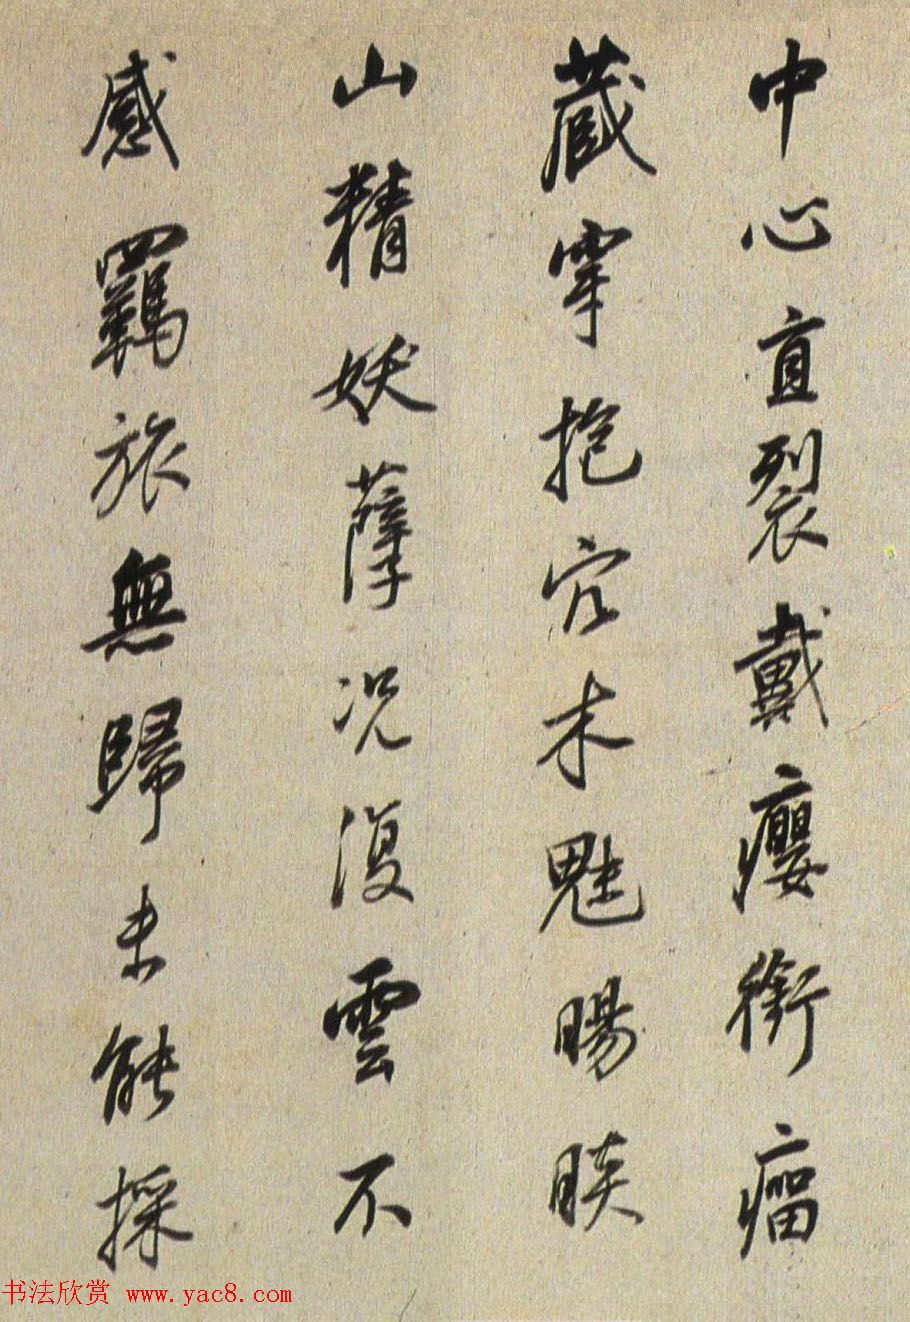 中心直裂戴癭銜瘤
藏穿抱穴木魅暘睒
山精妖孽况復雲不
感羈旅無歸未能採
书法欣赏 www.yac8.com